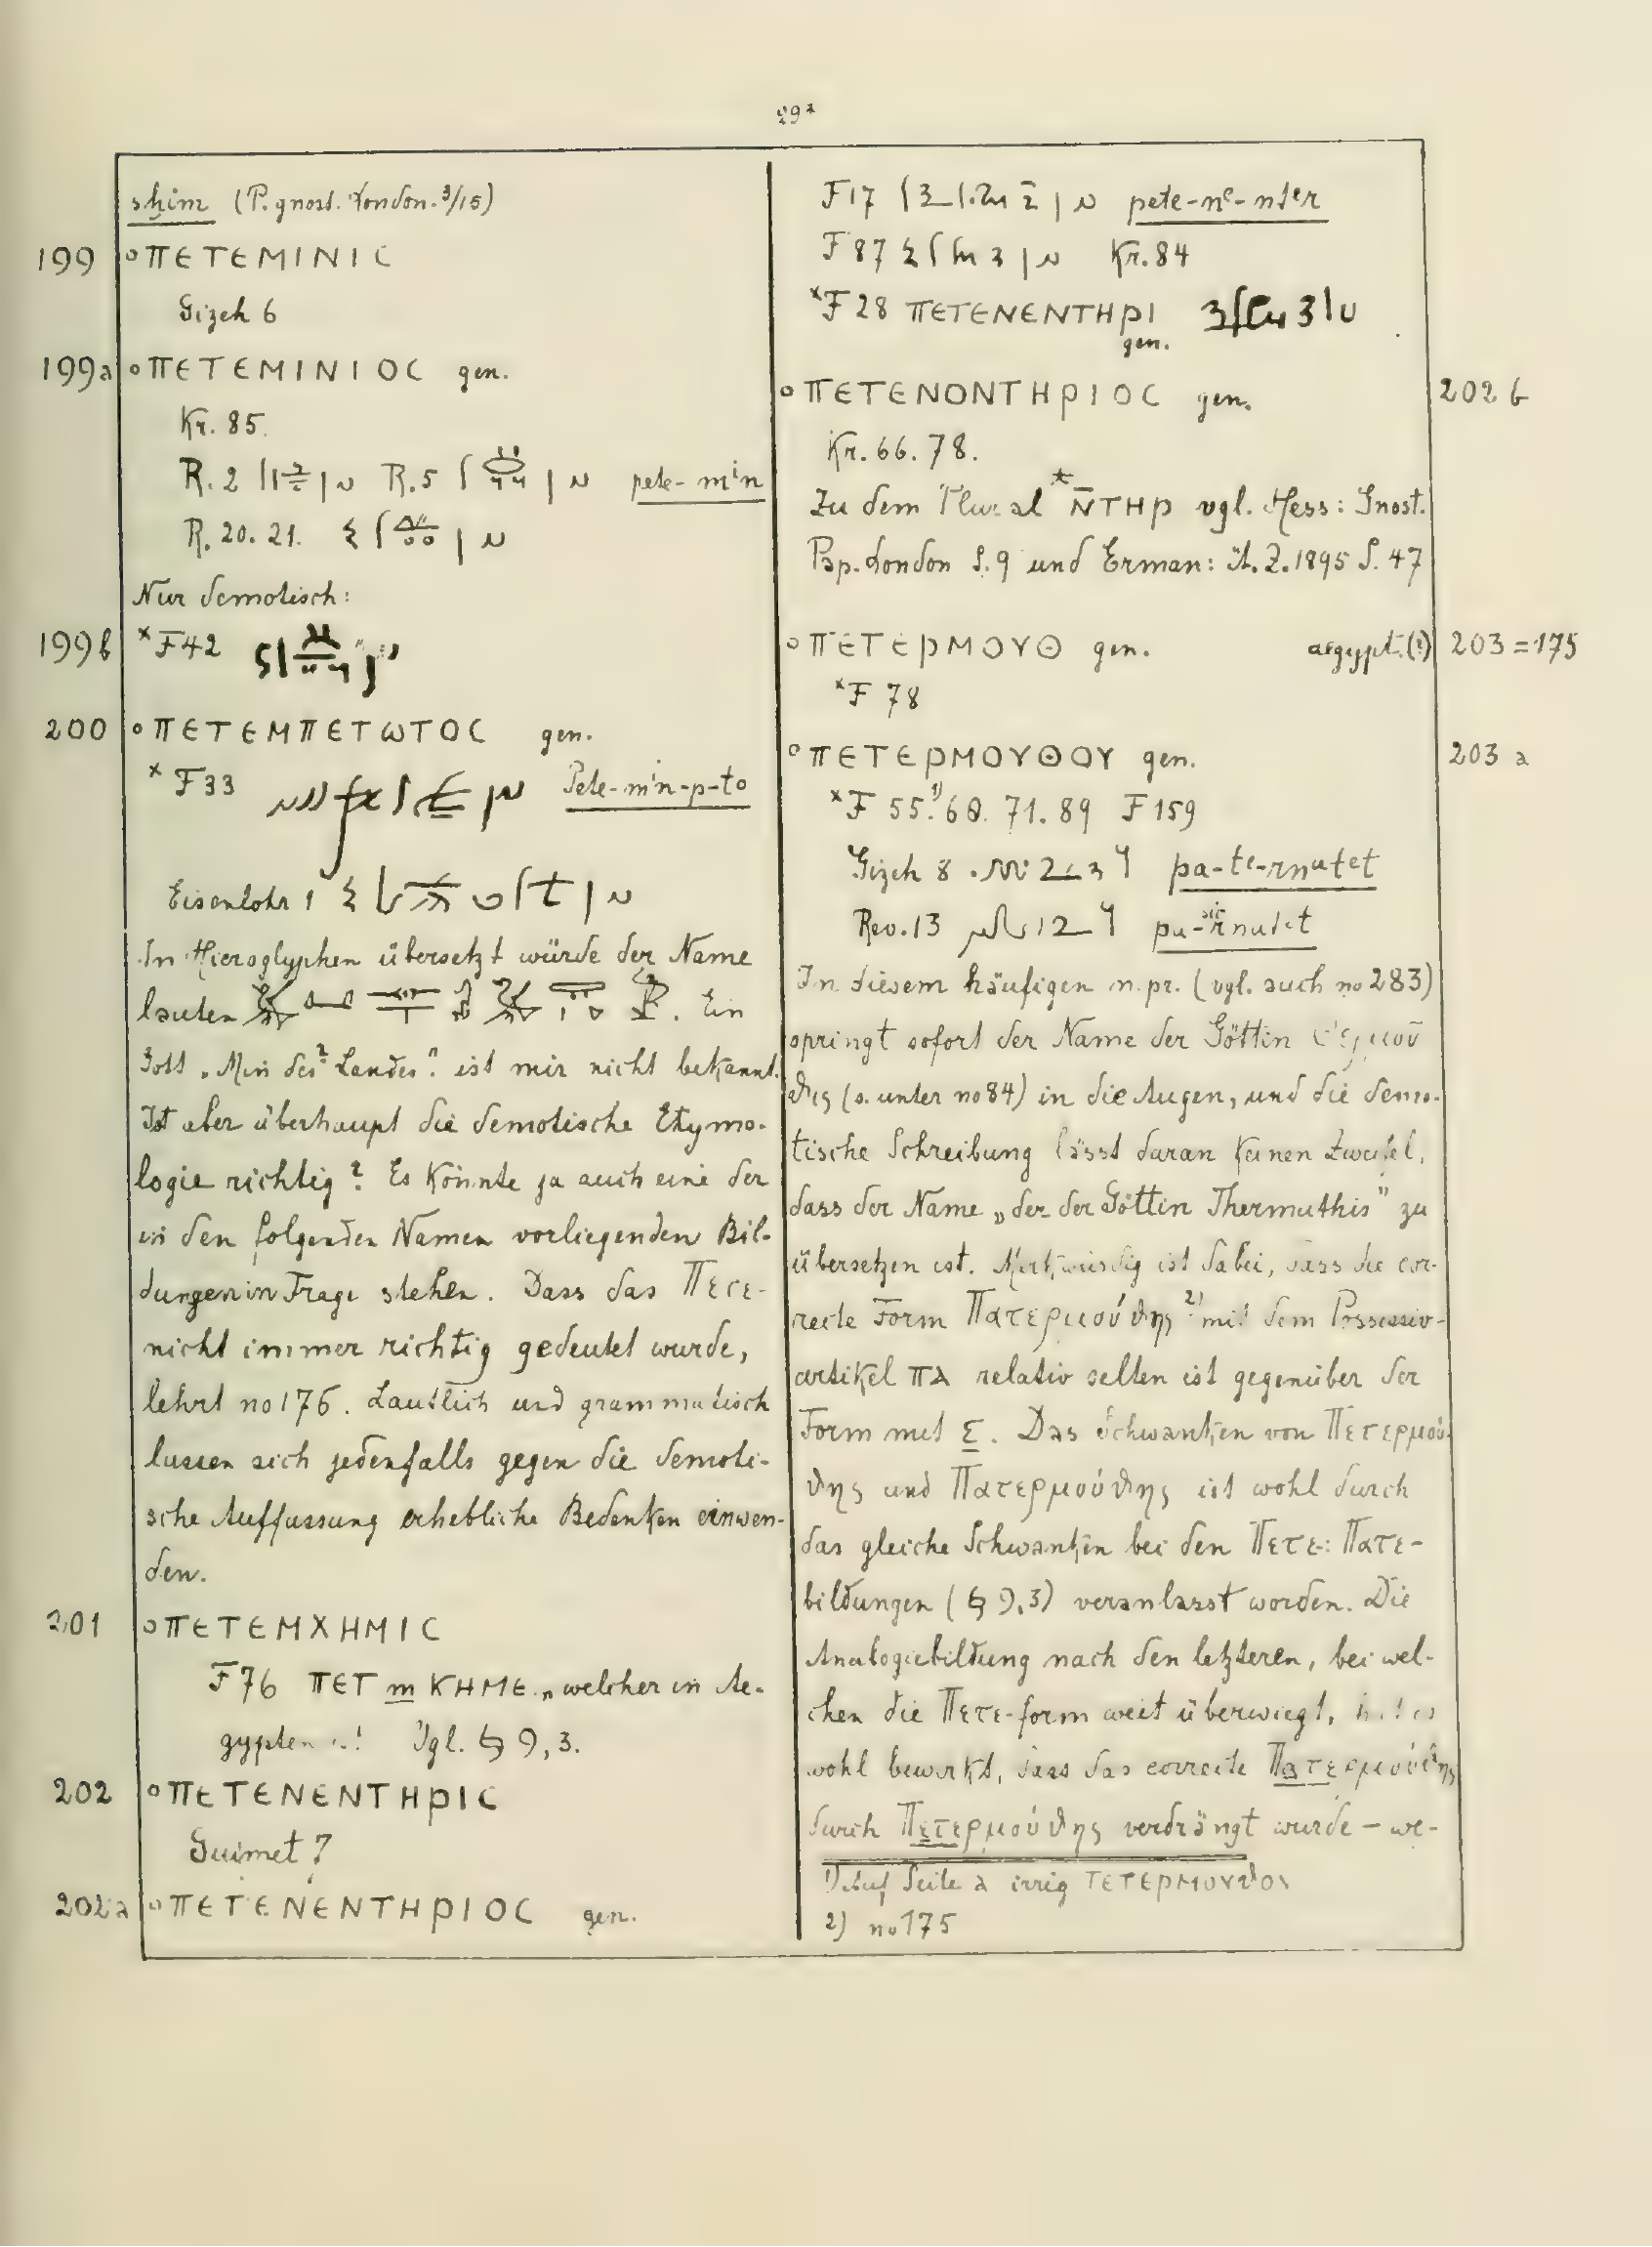 29*
sḫim (P. gnost. London. 3/15)
199 °ΠΕΤΕΜΙΝΙC
Gizeh 6
199a °ΠΕΤΕΜΙΝΙΟC gen.
Kr. 85.
R. 2 R. 5 pete-min
R. 20. 21.
Nur demotisch:
199b *F42
200 °ΠΕΤΕΜΠΕΤωΤΟC gen.
*F33 Pete-min-p-to
Eisenlohr 1
In Hieroglyphen übersetzt würde der Name
lauten . Ein
Gott „Min des? Landes“. ist mir nicht bekannt.
Ist aber überhaupt die demotische Etymo-
logie richtig? Es könnte ja auch eine der
in den folgenden Namen vorliegenden Bil-
dungen in Frage stehen. Dass das Πετε-
nicht immer richtig gedeutet wurde,
lehrt no 176. Lautlich und grammatisch
lassen sich jedenfalls gegen die demoti-
sche Auffassung erhebliche Bedenken einwen-
den.
201 °ΠΕΤΕΜΧΗΜΙC
F76 ΠΕΤ m ΚΗΜΕ „welcher in Ae-
gypten Vgl. § 9, 3.
202 °ΠΕΤΕΝΕΝΤΗΡΙC
Guimet 7
202a °ΠΕΤΕΝΕΝΤΗΡΙΟC gen.
F17 pete-ne-nter
F87 Kr. 84
*F28 ΠΕΤΕΝΕΝΤΗΡΙ
gen.
°ΠΕΤΕΝΟΝΤΗΡΙΟC gen. 202b
Kr. 66. 78.
Zu dem Plural *N̄ΤΗΡ vgl. Hess: Gnost.
Pap. London S. 9 und Erman: Ä. Z. 1895 S. 47
°ΠΕΤΕΡΜΟΥΘ gen. aegypt. (?) 203 = 175
*F 78
°ΠΕΤΕΡΜΟΥΘΟΥ gen. 203a
*F 55.¹⁾ 60. 71. 89 F 159
Gizeh 8 pa-te-rnutet
Rev. 13 pa-rnutet
In diesem häufigen n. pr. (vgl. auch no 283)
springt sofort der Name der Göttin Θερμοῦ
θις (s. unter no 84) in die Augen, und die demo-
tische Schreibung lässt daran keinen Zweifel,
dass der Name „der der Göttin Thermuthis“ zu
übersetzen ist. Merkwürdig ist dabei, dass die cor-
recte Form Πατερμούθης ²⁾ mit dem Possessiv-
artikel ΠΑ relativ selten ist gegenüber der
Form mit Ε. Das Schwanken von Πετερμού-
θης und Πατερμούθης ist wohl durch
das gleiche Schwanken bei den Πετε-: Πατε-
bildungen (§ 9, 3) veranlasst worden. Die
Analogiebildung nach den letzteren, bei wel-
chen die Πετε-form weit überwiegt, hat es
wohl bewirkt, dass das correcte Πατερμούθης
durch Πετερμούθης verdrängt wurde – we-
1) Auf Seite a irrig ΤΕΤΕΡΜΟΥΘΟΥ
2) no 175